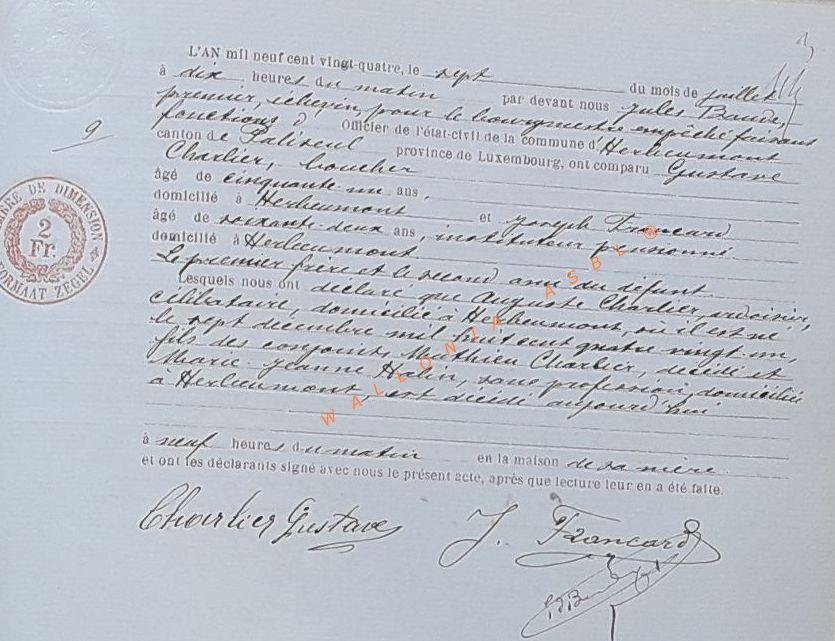 L'AN mil neuf cent vingt-quatre, le sept du mois de juillet
à dix heures du matin par devant nous Jules Baude,
premier échevin, pour le bourgmestre empêché faisant
fonctions d Officier de l'état-civil de la commune d'Herbeumont
9
canton de Paliseul province de Luxembourg, ont comparu Gustave
Charlier, boucher
âgé de cinquante un ans,
domicilié à Herbeumont et Joseph Francard
âgé de soixante-deux ans, instituteur pensionné
domicilié à Herbeumont
Le premier frère et le second ami du défunt.
Lesquels nous ont déclaré que Auguste Charlier, ardoisier,
célibataire, domicilié à Herbeumont, où il est né
le sept décembre mil huit cent quatre vingt-un,
fils des conjoints Mathieu Charlier, décédé et
Marie-Jeanne Halin, sans profession, domiciliée
à Herbeumont, est décédé aujourd'hui
à neuf heures du matin en la maison de sa mère.
et ont les déclarants signé avec nous le présent acte, après que lecture leur en a été faite.
Charlier Gustave J. Francard
DE DIMENSION
2
Fr.
FORMAAT ZEGEL
WALLONIA ASBL ©